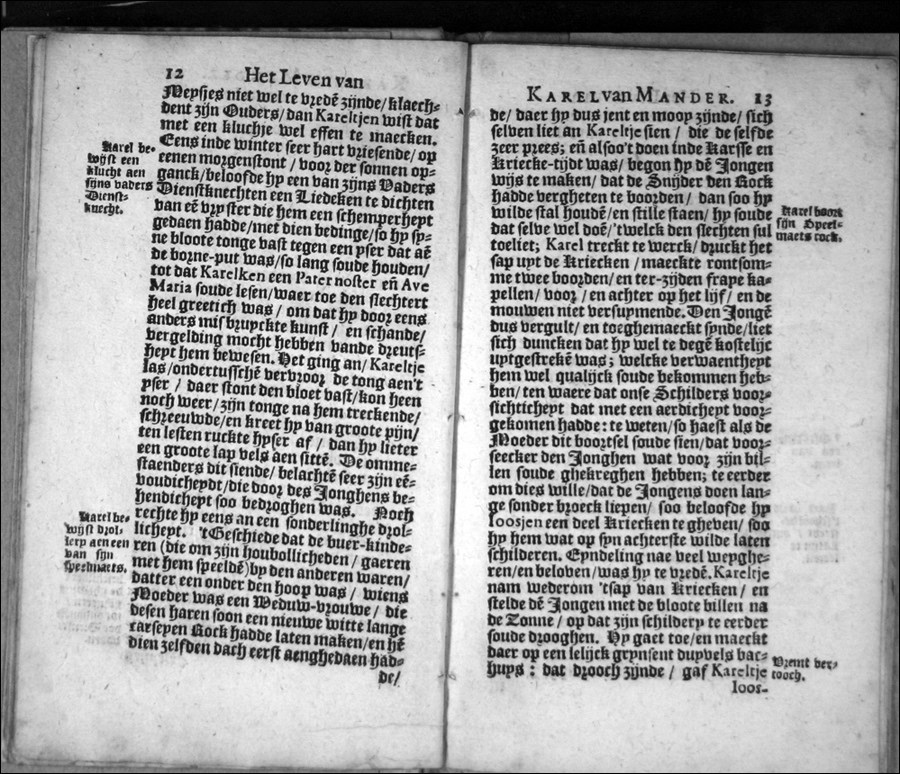 12 Het Leven van
Meysjes niet wel te vredē zijnde/ klaech-
dent zijn Ouders/ dan Kareltjen wist dat
met een kluchje wel effen te maecken.
Eens inde winter seer hart vriesende/ op
eenen morgenstont / voor der sonnen op-
ganck/ beloofde hy een van zijns Vaders
Dienstknechten een Liedeken te dichten
van eē vryster die hem een schemperheyt
gedaen hadde/ met dien bedinge/ so hy sy-
ne bloote tonge vast tegen een yser dat aē
de borne-put was/ so lang soude houden/
tot dat Karelken een Pater noster eñ Ave
Maria soude lesen/ waer toe den slechtert
heel greetich was / om dat hy door eens
anders misbruyckte kunst / en schande/
vergelding mocht hebben vande dreuts-
heyt hem bewesen. Het ging an/ Kareltje
las/ ondertusschē vervroor de tong aen't
yser / daer stont den bloet vast/ kon heen
noch weer/ zijn tonge na hem treckende/
schreeuwde/ en kreet hy van groote pijn/
ten lesten ruckte hyser af / dan hy lieter
een groote lap vels aen sittē. De omme-
staenders dit siende/ belachtē seer zijn eē-
voudicheydt/ die door des Jonghens be-
hendicheyt soo bedroghen was. Noch
rechte hy eens an een sonderlinghe drol-
licheyt. 't Geschiede dat de buer-kinde-
ren (die om zijn houbollicheden / gaeren
met hem speeldē) by den anderen waren/
datter een onder den hoop was / wiens
Moeder was een Weduw-vrouwe / die
desen haren soon een nieuwe witte lange
carseyen Rock hadde laten maken/ en hē
dien zelfden dach eerst aenghedaen had-
de/
Karel be-
wijst een
klucht aen
sijns vaders
Dienst-
knecht.
Karel be-
wijst drol-
lery aen een
van sijn
speelmaets.
KAREL van MANDER. 13
de/ daer hy dus jent en mooy zijnde/ sich
selven liet an Kareltje sien / die de selfde
zeer prees; eñ alsoo't doen inde Karsse en
Kriecke-tijdt was/ begon hy dē Jongen
wijs te maken/ dat de Snijder den Rock
hadde vergheten te boorden / dan soo hy
wilde stal houdē/ en stille staen/ hy soude
dat selve wel doē/ 'twelck den slechten sul
toeliet; Karel treckt te werck/ druckt het
sap uyt de Kriecken / maeckte rontsom-
me twee boorden/ en ter-zijden fraye ka-
pellen/ voor / en achter op het lijf / en de
mouwen niet versuymende. Den Jongē
dus vergult/ en toeghemaeckt synde/ liet
sich duncken dat hy wel te degē kostelijc
uytgestrekē was; welcke verwaentheyt
hem wel qualijck soude bekommen heb-
ben/ ten waere dat onse Schilders voor-
sichticheyt dat met een aerdicheyt voor-
gekomen hadde: te weten/ so haest als de
Moeder dit boortsel soude sien/ dat voor-
seecker den Jonghen wat voor zijn bil-
len soude ghekreghen hebben; te eerder
om dies wille/ dat de Jongens doen lan-
ge sonder broeck liepen/ soo beloofde hy
loosjen een deel Kriecken te gheven/ soo
hy hem wat op syn achterste wilde laten
schilderen. Eyndeling nae veel weyghe-
ren/ en beloben/ was hy te vredē. Kareltje
nam wederom 'tsap van Kriecken / en
stelde dē Jongen met de bloote billen na
de Zonne / op dat zijn schildery te eerder
soude drooghen. Hy gaet toe/ en maeckt
daer op een lelijck grynsent duyvels bac-
huys : dat drooch zijnde / gaf Kareltje
loos-
Karel boort
sijn Speel-
maets rock.
Vremt ver-
tooch.